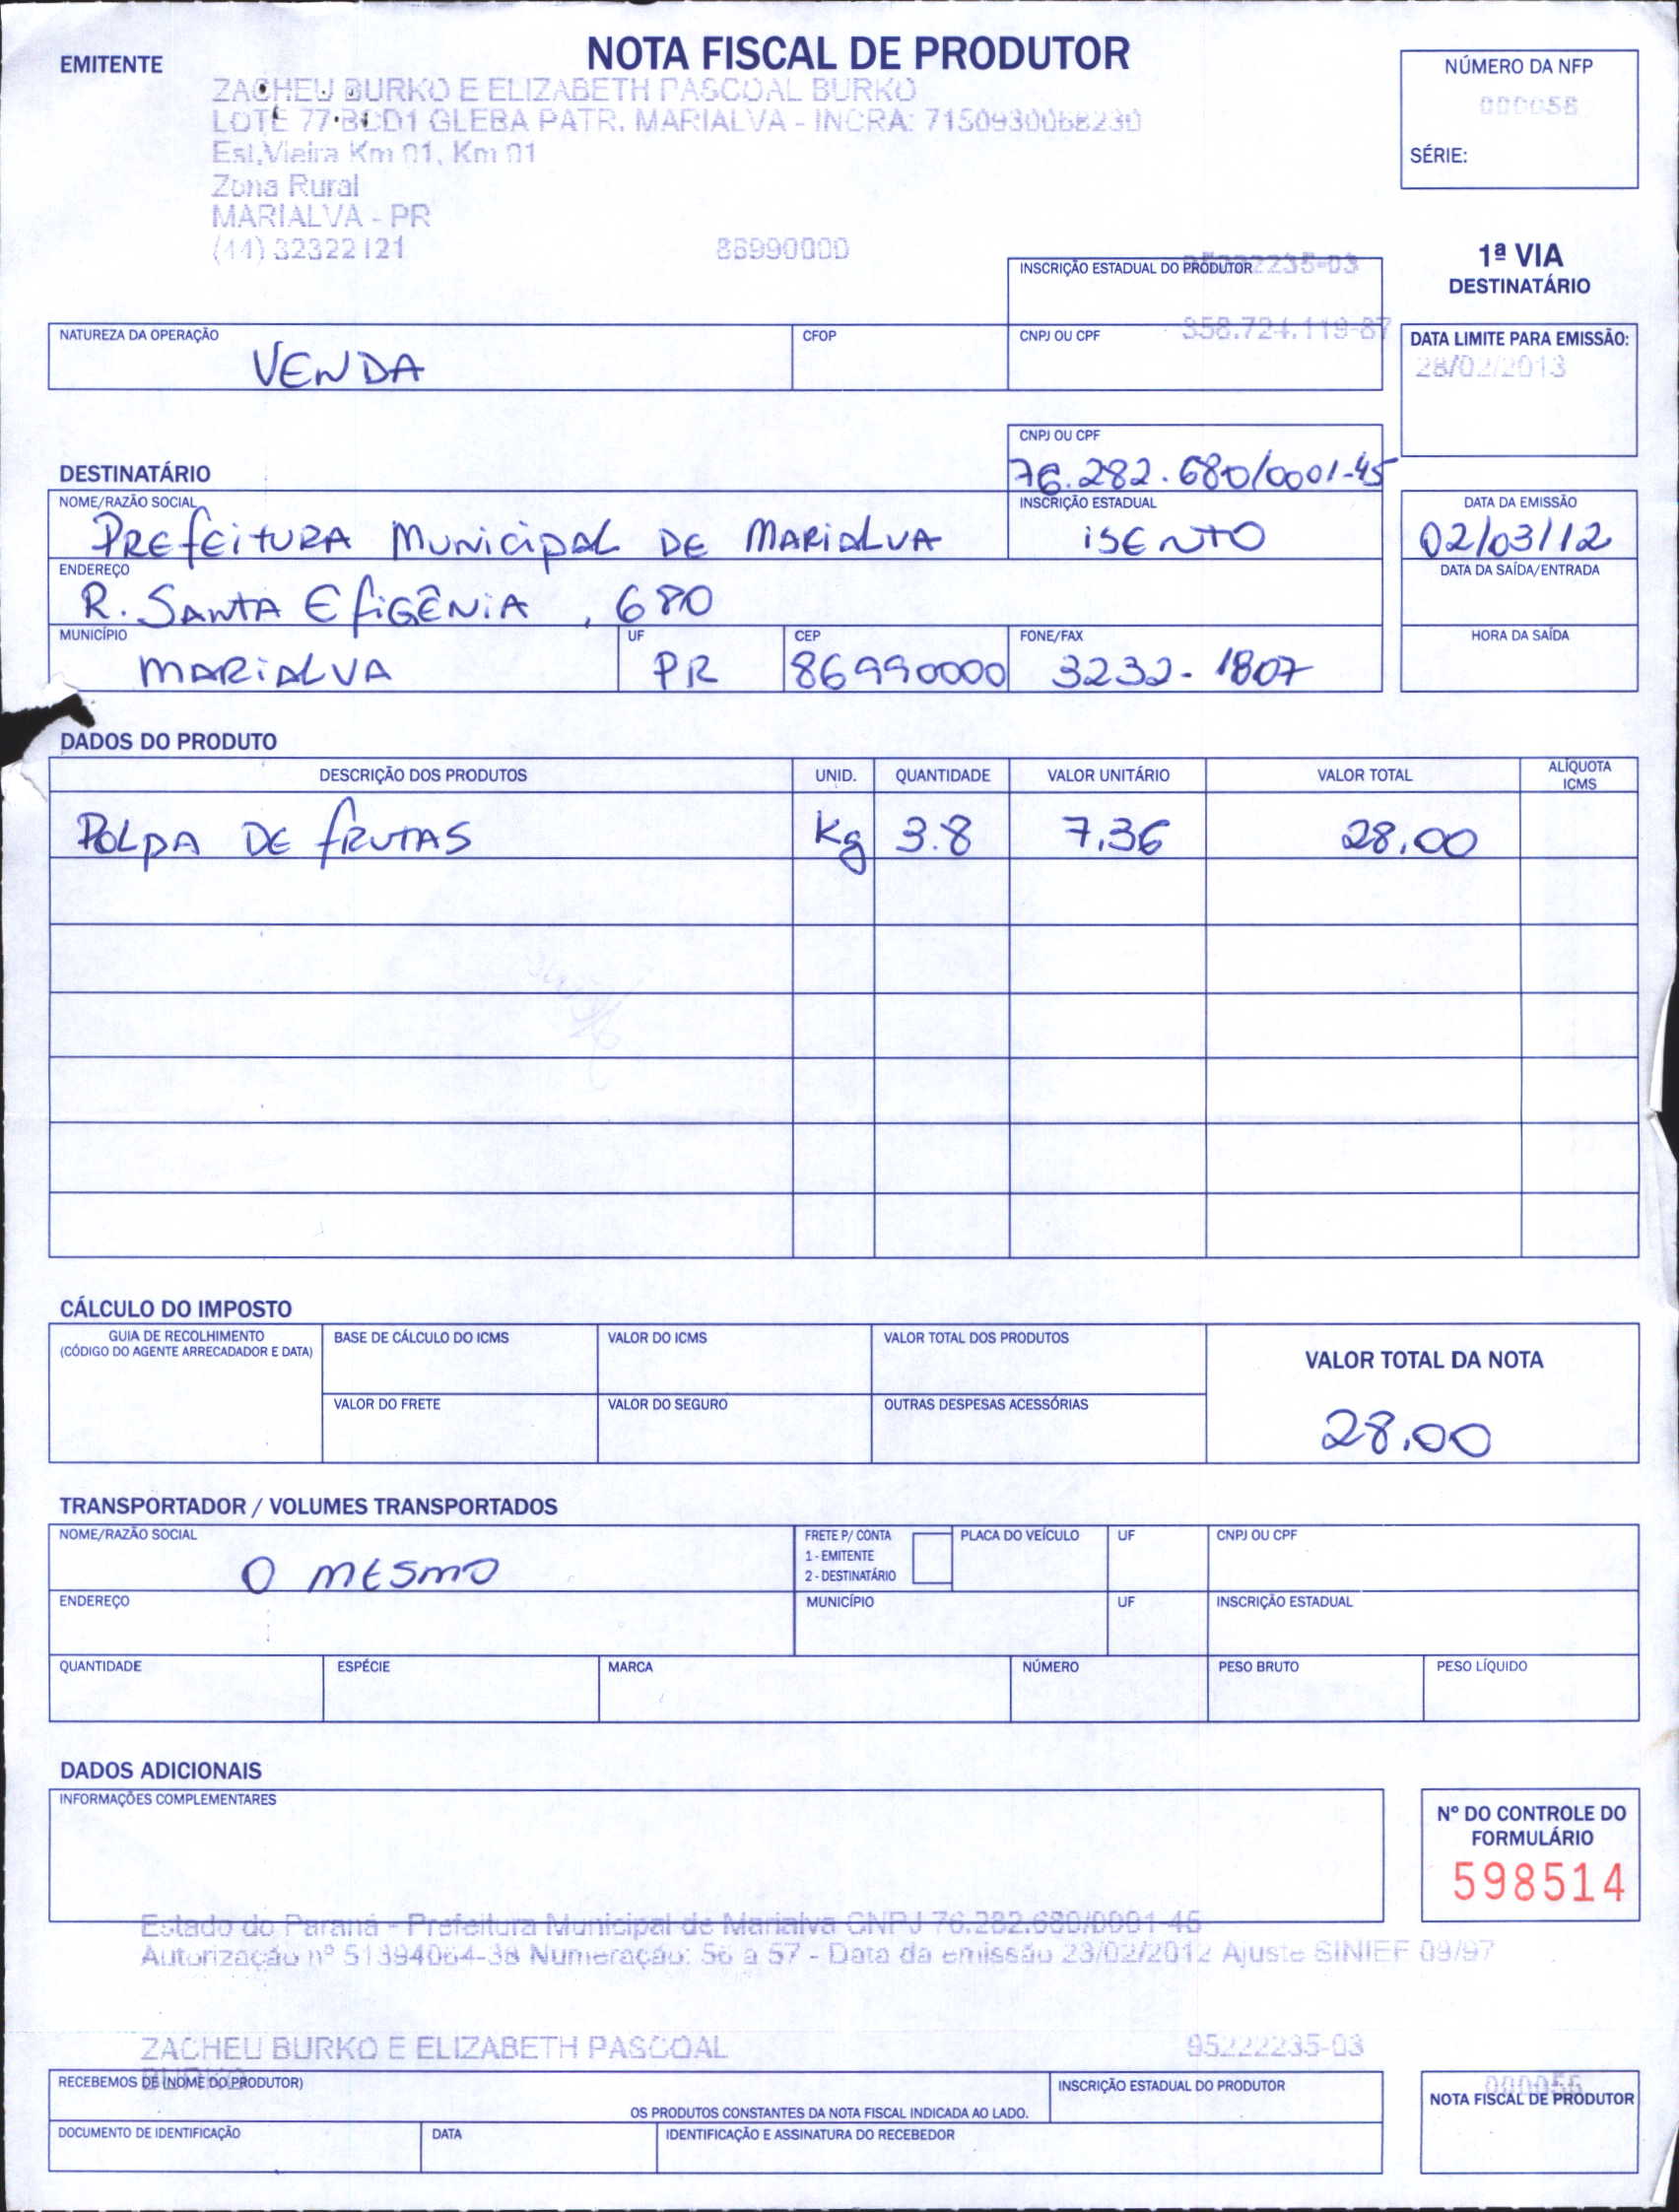 NOTA FISCAL DE PRODUTOR
EMITENTE
ZACHEU BURKO E ELIZABETH PASCOAL BURKO
LOTE 77 GLEBA PATR. MARIALVA - INCRA:
Est.Vieira Km 01, Km 01
Zona Rural
MARIALVA - PR
(44) 32322121 86990000
NÚMERO DA NFP
000056
SÉRIE:
1ª VIA
DESTINATÁRIO
INSCRIÇÃO ESTADUAL DO PRODUTOR 95222235-03
NATUREZA DA OPERAÇÃO
VENDA
CFOP
CNPJ OU CPF 358.724.119-87
DATA LIMITE PARA EMISSÃO:
28/02/2013
DESTINATÁRIO
CNPJ OU CPF
76.282.680/0001-45
NOME/RAZÃO SOCIAL
PREFEITURA MUNICIPAL DE MARIALVA
INSCRIÇÃO ESTADUAL
ISENTO
DATA DA EMISSÃO
02/03/12
ENDEREÇO
R. SANTA EFIGÊNIA, 680
DATA DA SAÍDA/ENTRADA
MUNICÍPIO
MARIALVA
UF
PR
CEP
86990000
FONE/FAX
3232-1807
HORA DA SAÍDA
DADOS DO PRODUTO
DESCRIÇÃO DOS PRODUTOS UNID. QUANTIDADE VALOR UNITÁRIO VALOR TOTAL ALÍQUOTA ICMS
POLPA DE FRUTAS Kg 3.8 7,36 28,00
CÁLCULO DO IMPOSTO
GUIA DE RECOLHIMENTO
(CÓDIGO DO AGENTE ARRECADADOR E DATA)
BASE DE CÁLCULO DO ICMS
VALOR DO ICMS
VALOR TOTAL DOS PRODUTOS
VALOR TOTAL DA NOTA
28,00
VALOR DO FRETE
VALOR DO SEGURO
OUTRAS DESPESAS ACESSÓRIAS
TRANSPORTADOR / VOLUMES TRANSPORTADOS
NOME/RAZÃO SOCIAL
O MESMO
FRETE P/ CONTA
1 - EMITENTE
2 - DESTINATÁRIO
PLACA DO VEÍCULO
UF
CNPJ OU CPF
ENDEREÇO
MUNICÍPIO
UF
INSCRIÇÃO ESTADUAL
QUANTIDADE
ESPÉCIE
MARCA
NÚMERO
PESO BRUTO
PESO LÍQUIDO
DADOS ADICIONAIS
INFORMAÇÕES COMPLEMENTARES
Nº DO CONTROLE DO
FORMULÁRIO
598514
Estado do Paraná - Prefeitura Municipal de Marialva CNPJ 76.282.680/0001-45
Autorização nº 51394064-38 Numeração: 56 a 57 - Data da emissão 23/02/2012 Ajuste SINIEF 09/97
ZACHEU BURKO E ELIZABETH PASCOAL
BURKO
95222235-03
RECEBEMOS DE (NOME DO PRODUTOR)
OS PRODUTOS CONSTANTES DA NOTA FISCAL INDICADA AO LADO.
INSCRIÇÃO ESTADUAL DO PRODUTOR
000056
NOTA FISCAL DE PRODUTOR
DOCUMENTO DE IDENTIFICAÇÃO
DATA
IDENTIFICAÇÃO E ASSINATURA DO RECEBEDOR